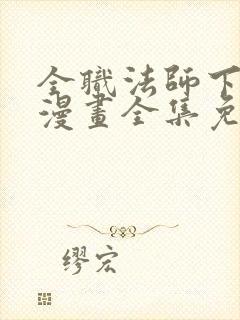 全職法師下
漫畫全集免
繆宏